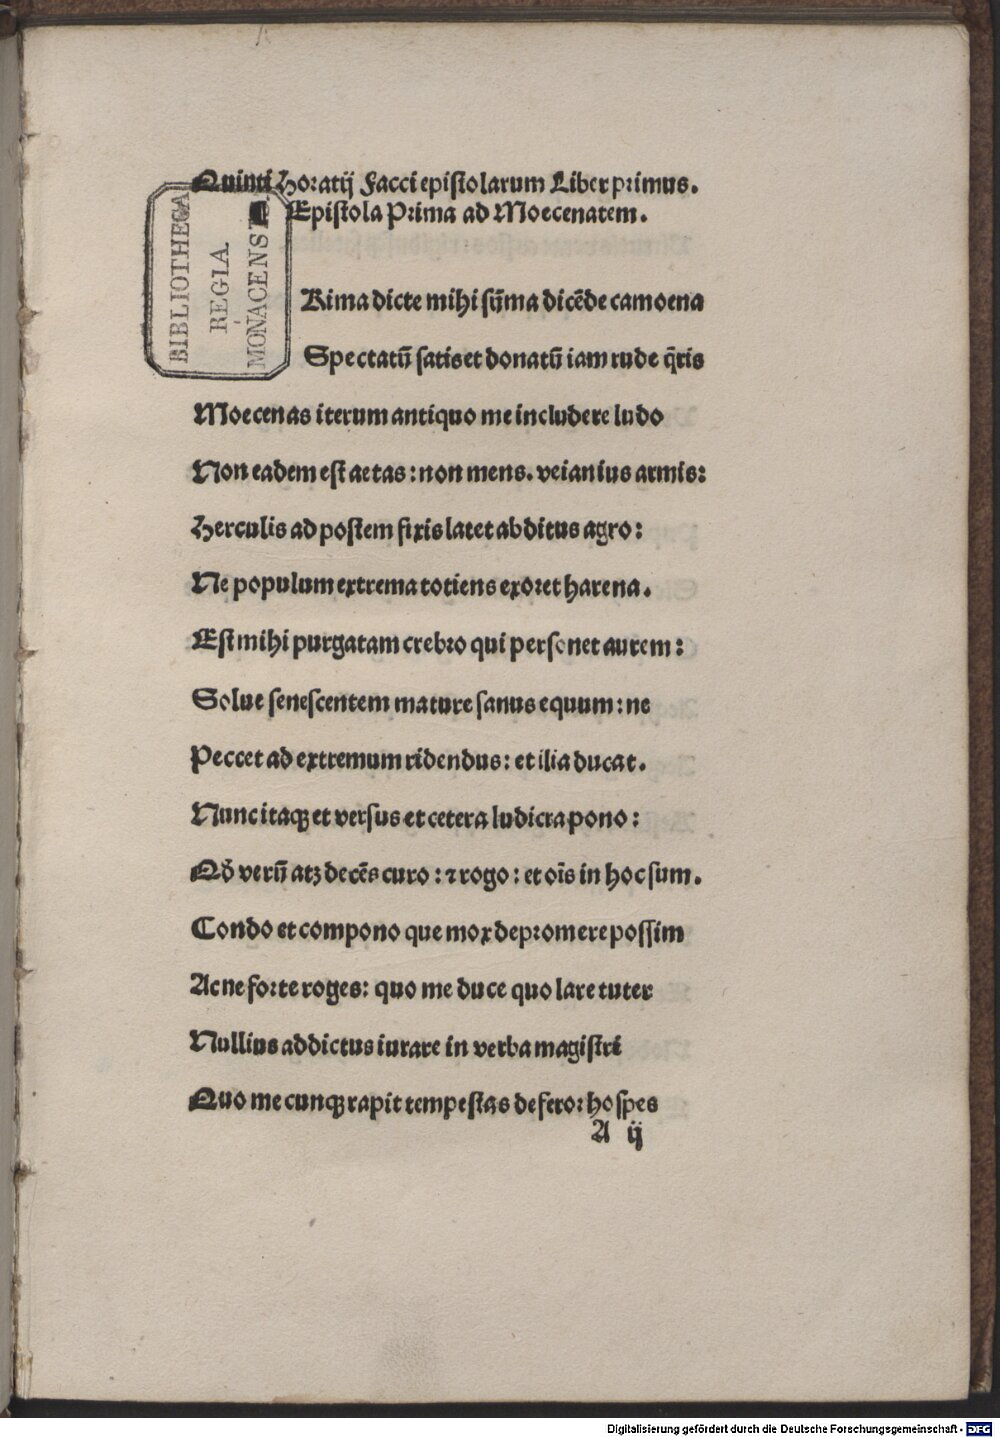 Quinti Horatij Facci epistolarum Liber primus.
¶ Epistola Prima ad Moecenatem.
BIBLIOTHECA
REGIA
MONACENSI
Rima dicte mihi sūma dicēde camoena
Spectatū satis et donatū iam rude q̄ris
Moecenas iterum antiquo me includere ludo
Non eadem est aetas: non mens. veianius armis:
Herculis ad postem fixis latet abditus agro:
Ne populum extrema totiens exoret harena.
Est mihi purgatam crebro qui personet aurem:
Solue senescentem mature sanus equum: ne
Peccet ad extremum ridendus: et ilia ducat.
Nunc itaqꝫ et versus et cetera ludicra pono:
Qđ verū atꝫ decēs curo: ⁊ rogo: et oīs in hoc sum.
Condo et compono que mox depromere possim
Ac ne forte roges: quo me duce quo lare tuter
Nullius addictus iurare in verba magistri
Quo me cunqꝫ rapit tempestas deferor hospes
A ij
Digitalisierung gefördert durch die Deutsche Forschungsgemeinschaft - DFG